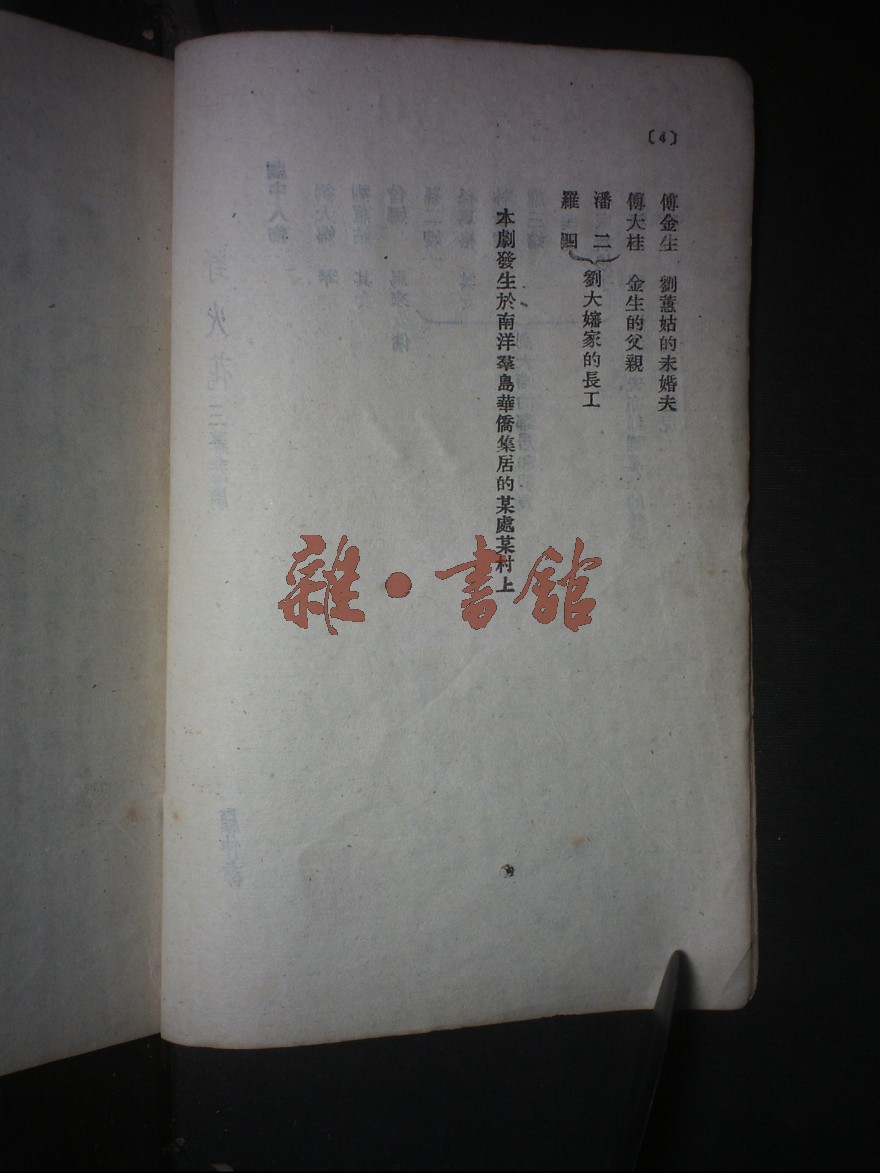 〔4〕
傅金生　劉蕙姑的未婚夫
傅大桂　金生的父親
潘　二
羅　四
劉大嬸家的長工
本劇發生於南洋羣島華僑集居的某處某村上
雜·書舘